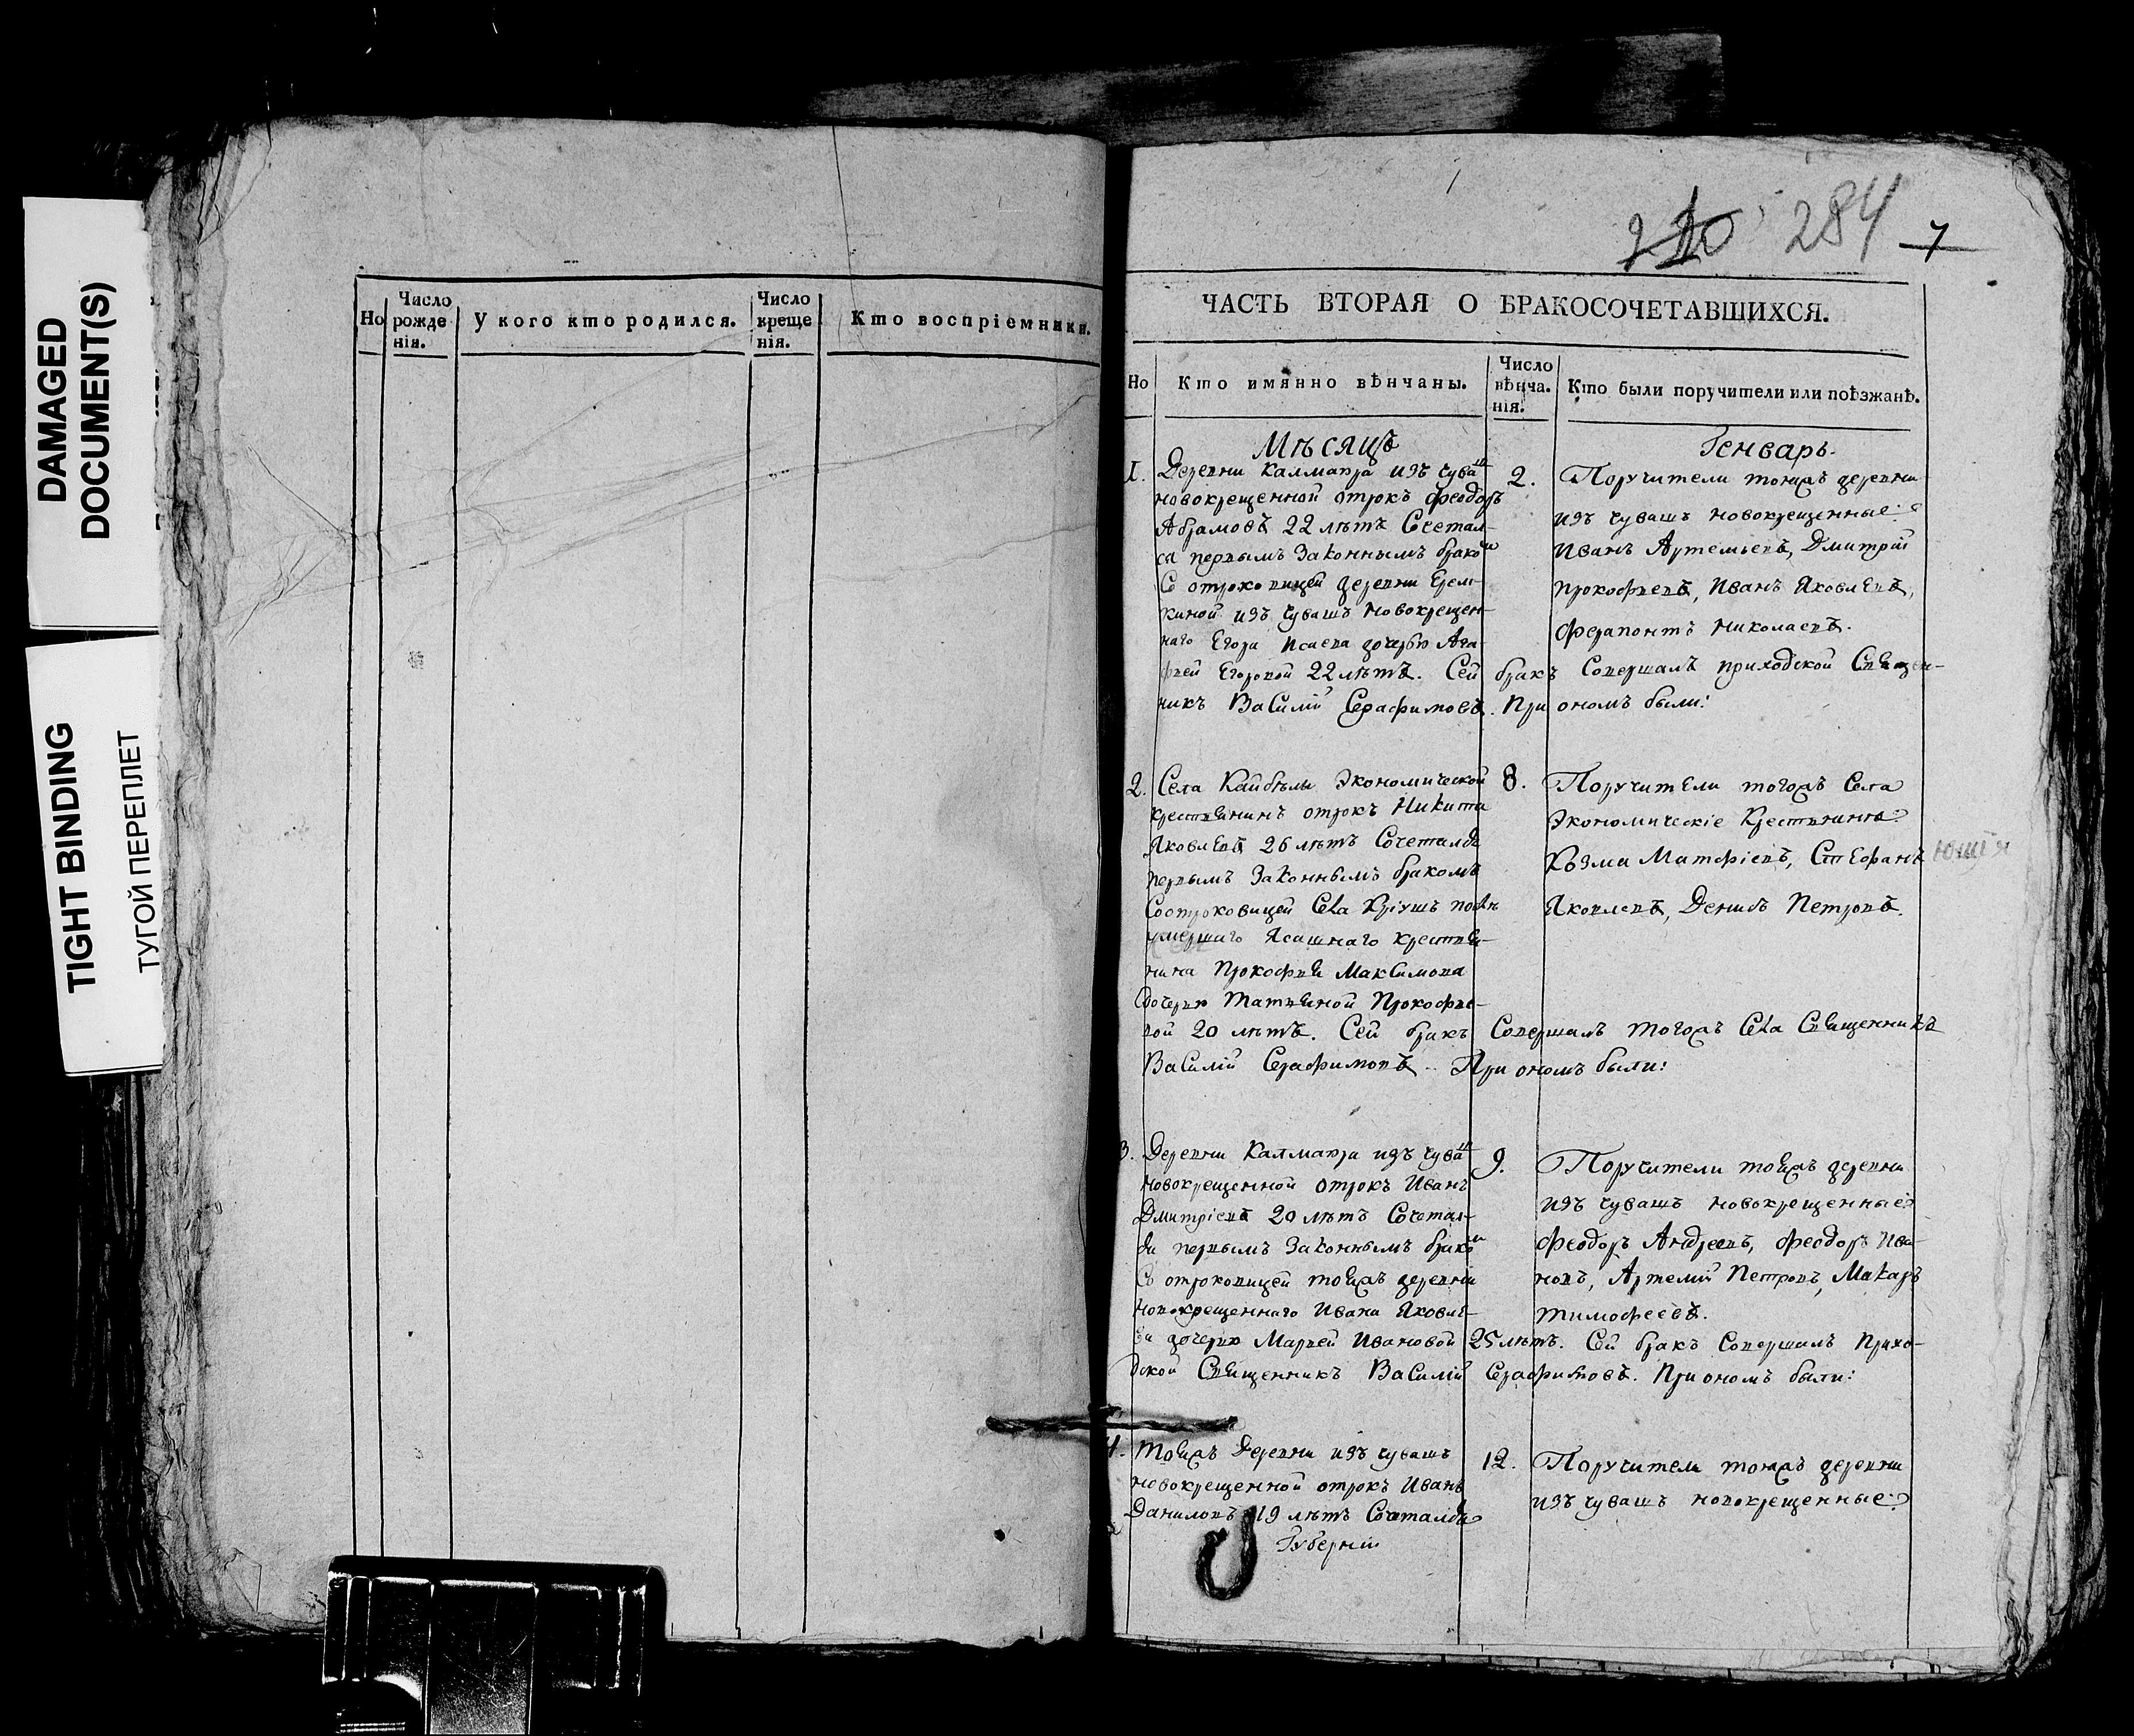 DAMAGED
DOCUMENT(S)
TIGHT BINDING
ТУГОЙ ПЕРЕПЛЕТ
Но
Число рожде нія.
У кого кто родился.
Число креще нія.
Кто воспріемники.
210 284 7
ЧАСТЬ ВТОРАЯ О БРАКОСОЧЕТАВШИХСЯ.
Но
Кто имянно вѣнчаны.
Число вѣнча. нія.
Кто были поручители или поѣзжанѣ.
Мѣсяцъ Генварь.
1. Деревни Калмаюра изъ чуваш
новокрещенной отрокъ Феодоръ
Абрамовъ 22 лѣтъ Сочетал-
ся первымъ Законнымъ бракомъ
Со отроковицей деревни Ерем-
киной изъ чувашъ новокрещен-
наго Егора Исаева дочерью Ага-
фьей Егоровой 22 лѣтъ. Сей бракъ Совершалъ приходской Священ-
никъ Василій Серафимовъ. При ономъ были:
2. Поручители тояжъ деревни
изъ чувашъ новокрещенные:
Иванъ Артемьевъ, Дмитрій
Прокофьевъ, Иванъ Яковлевъ,
Ферапонтъ Николаевъ.
2. Села Кайбѣлы Экономической
крестьянинъ отрокъ Никита
Яковлевъ 26 лѣтъ Сочетался
первымъ Законнымъ бракомъ
Соотроковицей Села Кріушъ послѣ
умершаго Ясашнаго крестья-
нина Прокофья Максимова
дочерью Татьяной Прокофье-
вой 20 лѣтъ. Сей бракъ Совершалъ тогожъ Села Священникъ
Василій Серафимовъ. При ономъ были:
8. Поручители тогожъ Села
Экономическіе Крестьянина:
Козма Матфіевъ, Стефанъ
Яковлевъ, Денисъ Петровъ.
3. Деревни Калмаюра изъ чуваш
новокрещенной отрокъ Иванъ
Дмитріевъ 20 лѣтъ Сочетал-
ся первымъ Законнымъ бракомъ
Со отроковицей тояжъ деревни
новокрещеннаго Ивана Яковле-
ва дочерью Марьей Ивановой 25 лѣтъ. Сей бракъ Совершалъ Прихо-
дской Священникъ Василій Серафимовъ. При ономъ были:
9. Поручители тояжъ деревни
изъ чувашъ новокрещенные:
Феодоръ Андреевъ, Феодоръ Ива-
новъ, Артемій Петровъ, Макаръ
Тимофеевъ.
4. Тояжъ Деревни изъ чувашъ
новокрещенной отрокъ Иванъ
Даниловъ 19 лѣтъ Сочетался
Губерніи
12. Поручители тояжъ деревни
изъ чувашъ новокрещенные: